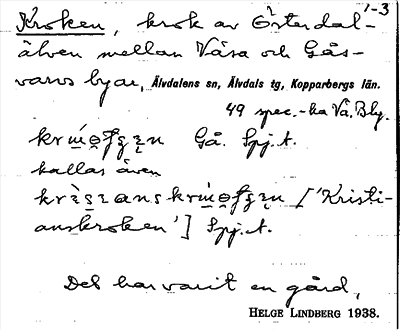 1-3
Kroken, krok av Österdal-
älven mellan Våsa och Gås-
varvs byar, Älvdalens sn, Älvdals tg, Kopparbergs län.
49 spec.-ka Vå. Bly.
Gå. Spj.t.
kallas även
['Kristi-
anskroken'] Spj.t.
Det har varit en gård,
HELGE LINDBERG 1938.